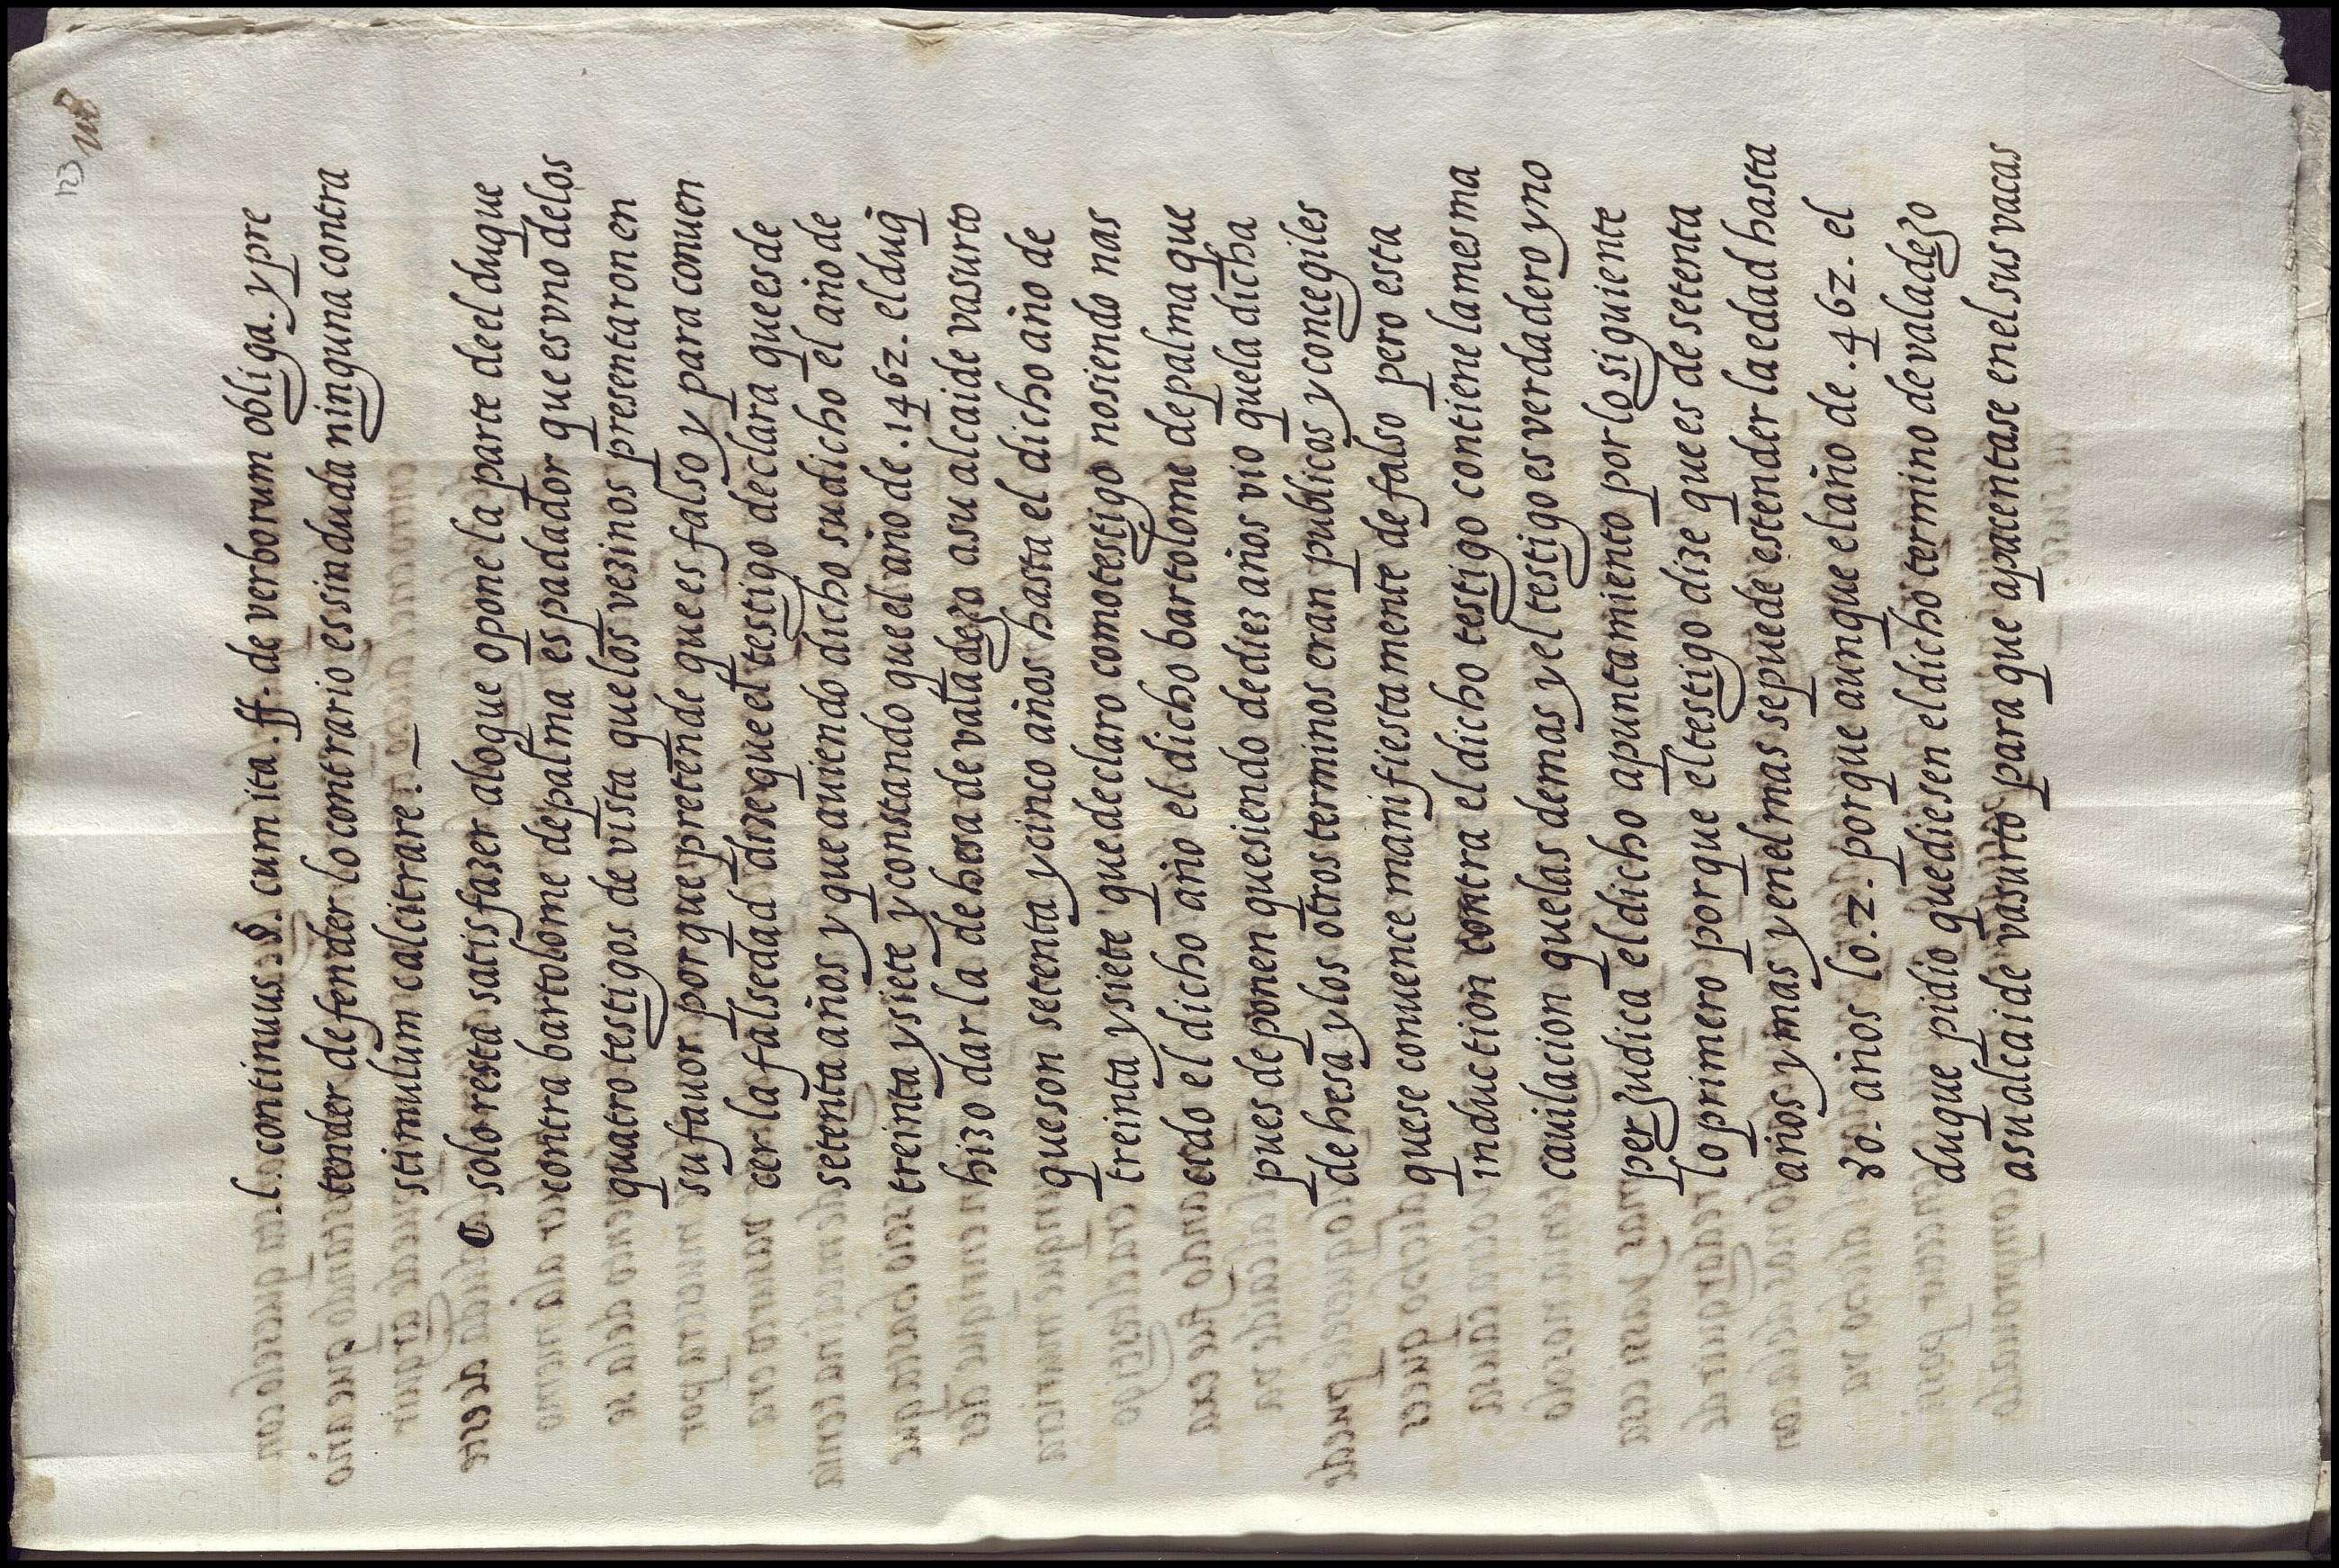 123
.l. continuus. §. cum ita. ff. de verborum obliga. y pre
tender defender lo contrario es sin duda ninguna contra
stimulum calcitrare.
solo resta satisfazer a lo que opone la parte de el duque
contra bartolome de palma espadador que es vno de los
quatro testigos de vista que los vezinos presentaron en
su fauor por que pretende que es falso y para conuen
cer la falsedad dize que el testigo declara que es de
setenta años y que auiendo dicho su dicho el año de
treinta y siete y constando que el año de .1462. el duq̃
hizo dar la dehesa de valadezo a su alcaide vasurto
que son setenta y cinco años hasta el dicho año de
treinta y siete que declaro como testigo no siendo nas
cido el dicho año el dicho bartolome de palma que
pues deponen que siendo de diez años vio que la dicha
dehesa y los otros terminos eran publicos y concegiles
que se conuence manifiestamente de falso pero esta
induction contra el dicho testigo contiene la mesma
cauilacion que las demas y el testigo es verdadero y no
perjudica el dicho apuntamiento por lo siguiente
lo primero por que el testigo dize que es de setenta
años y mas y en el mas se puede estender la edad hasta
80. años lo .2. por que aunque el año de .462. el
duque pidio que diesen el dicho termino de valadezo
a su alcaide vasurto para que apacentase en el sus vacas